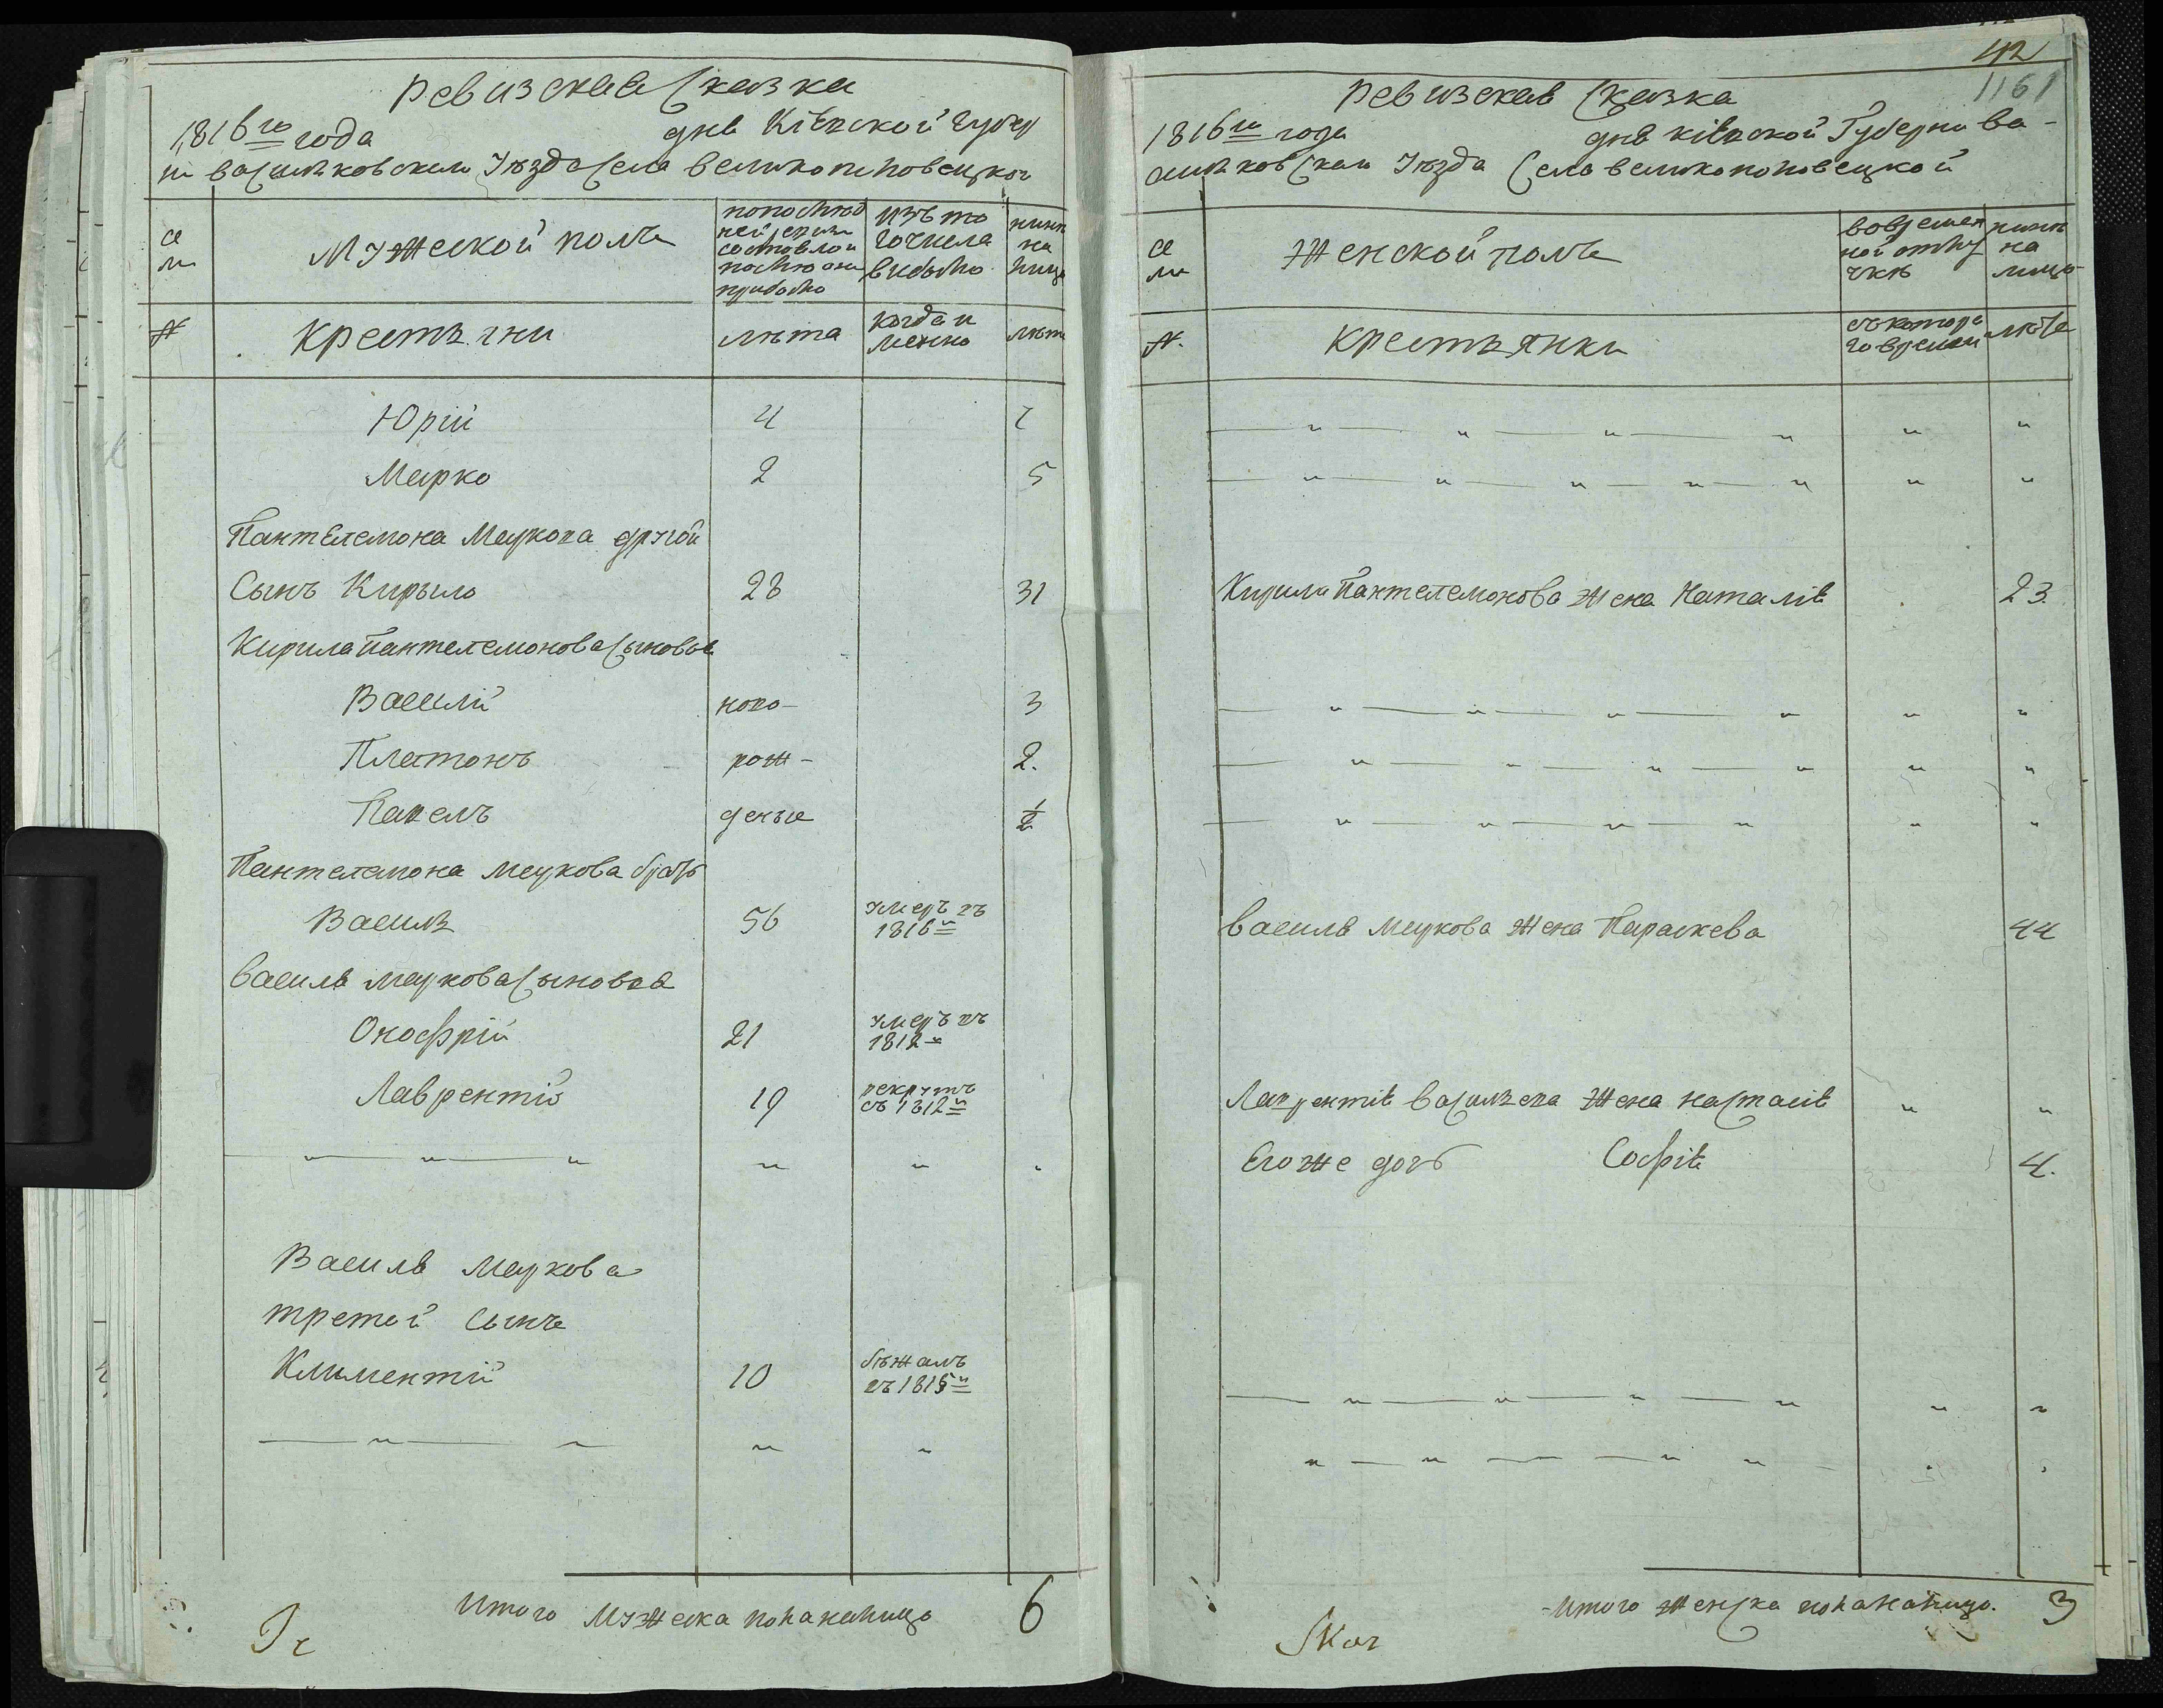 Ревизская Сказка
1816го года дня Кіевской Губер
ни Васильковскаго Уезда Села Великополовецкой
се
мы
Мужеской полъ
попослед
ней ревизи
состояло и
после оны
прибыло
изъ то
го числа
выбыло
ныне
на
лицо
№
Крестьяни
лета
когда и
менно
лета
Юрій 4 7
Марко 2 5
Пантелемона Маркова другой
Сынъ Кирыло 28 31
Кирила Пантелемонова Сыновья
Василій ново- 3
Платонъ рож- 2.
Павелъ деные 1/2
Пантелемона Маркова братъ
Василь 56 умеръ въ
1816м
Василя Маркова Сыновья
Онофрій 21 умеръ въ
1812м
Лаврентій 19 рекрутъ
съ 1812м
— " — " — " " " "
Василя Маркова
третой Сынъ
Климентій 10 бежалъ
въ 1815м
— " — " " "
Итого Мужеска пола налицо 6
42
1161
Ревизская Сказка
1816го года дня Кіевской Губерни Ва-
сильковскаго Уезда Села Великополовецкой
се
мы
Женской полъ
во временной отлу
чке
ныне
на
лицо
№.
Крестьянки
съ которо
го времени
лета
— " — " — " — " " "
— " — " — " — " — " " "
Кирила Пантелемонова жена Наталія 23.
— " — " — " — " " "
— " — " — " — " " "
— " — " — " — " " "
Василя Маркова жена Параскева 44
Лаврентія Васильева жена Настасія " "
Его же дочь Софія 4.
— " — " — " — " " "
" — " — " — " " "
Итого женска пола налицо. 3